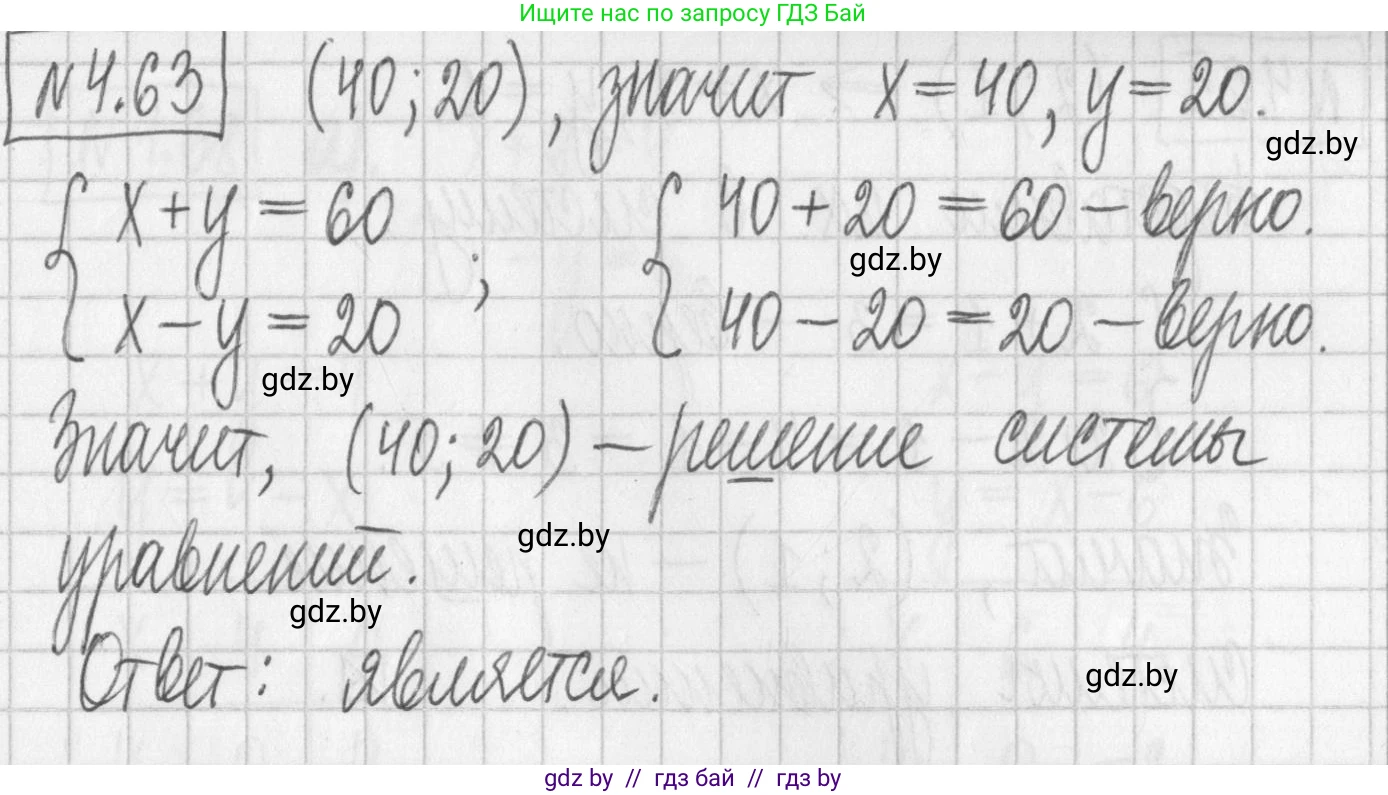 Ищите нас по запросу ГДЗ Бай
№4.63 (40; 20), значит x = 40, y = 20.
gdz.by
{ x + y = 60 ; { 40 + 20 = 60 – верно.
gdz.by
x – y = 20 40 – 20 = 20 – верно.
gdz.by
Значит, (40; 20) – решение системы
gdz.by
уравнений.
gdz.by
Ответ: является.
gdz.by
gdz by // гдз бай // гдз by